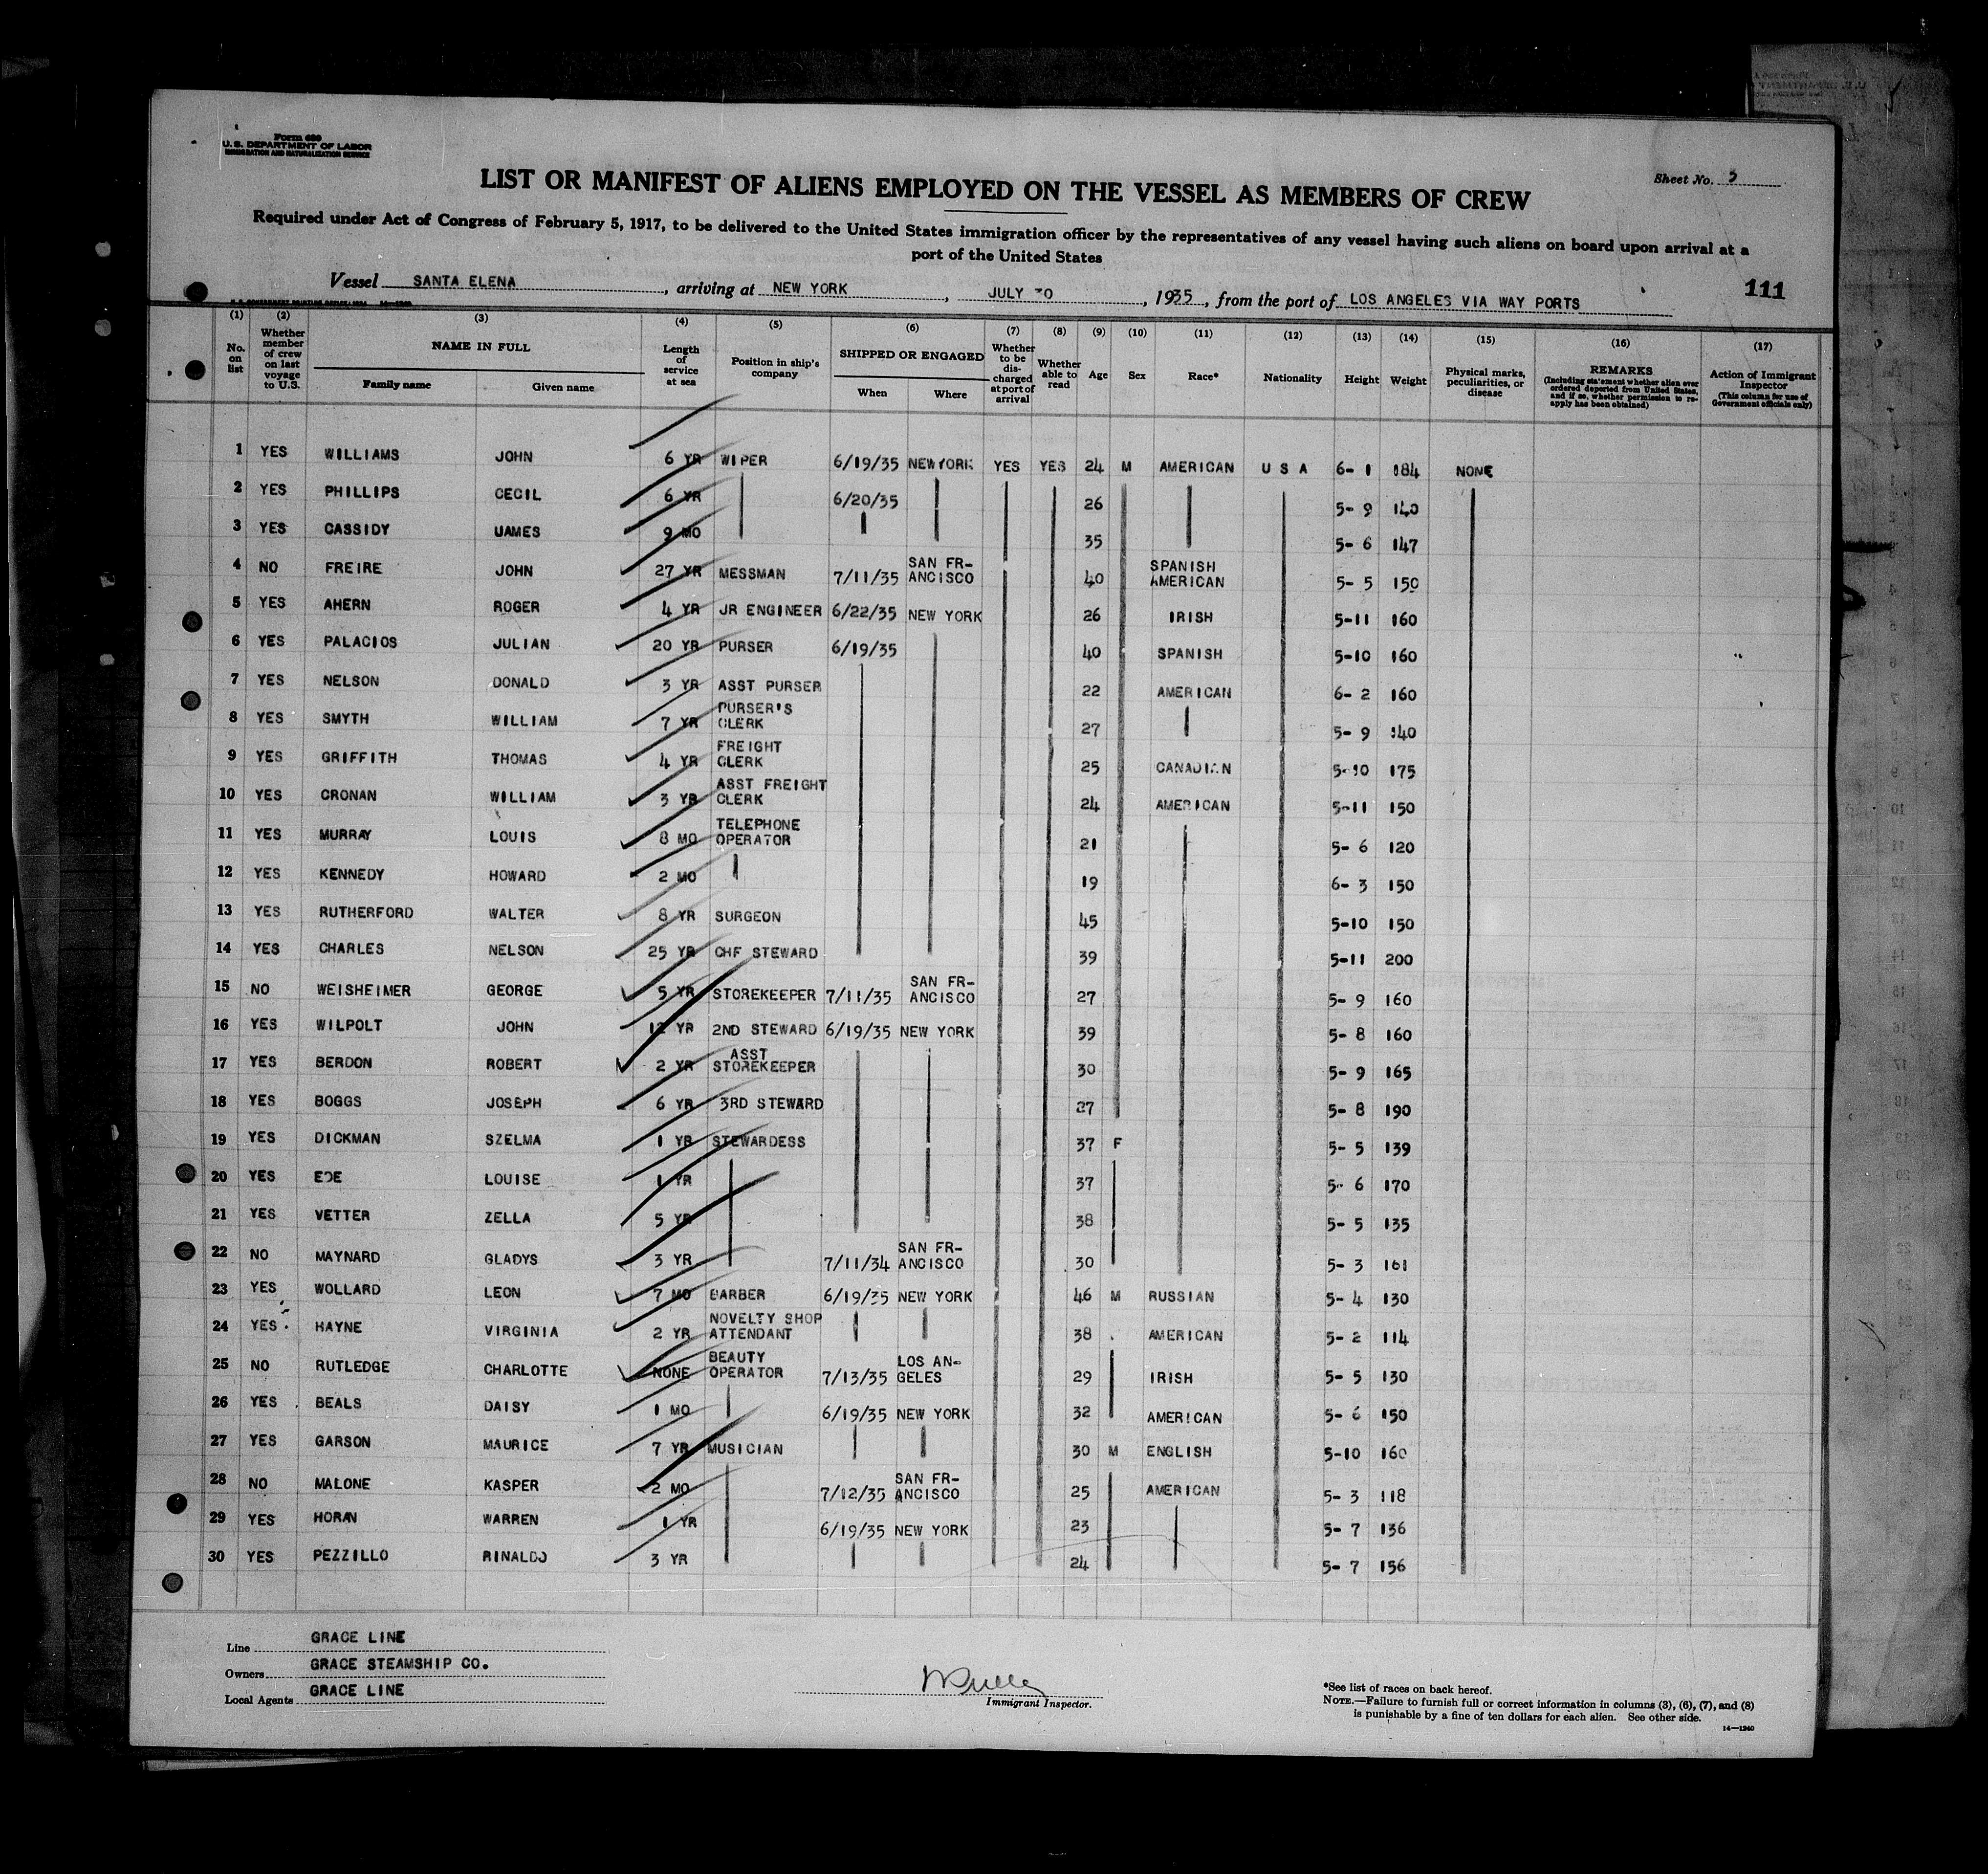 Form 680
U. S. DEPARTMENT OF LABOR
IMMIGRATION AND NATURALIZATION SERVICE
Sheet No. 5
LIST OR MANIFEST OF ALIENS EMPLOYED ON THE VESSEL AS MEMBERS OF CREW
Required under Act of Congress of February 5, 1917, to be delivered to the United States immigration officer by the representatives of any vessel having such aliens on board upon arrival at a
port of the United States
Vessel SANTA ELENA, arriving at NEW YORK, JULY 30, 1935, from the port of LOS ANGELES VIA WAY PORTS
111
(1) (2) (3) (4) (5) (6) (7) (8) (9) (10) (11) (12) (13) (14) (15) (16) (17)
No. on list
Whether member of crew on last voyage to U.S.
NAME IN FULL
Family name
Given name
Length of service at sea
Position in ship's company
SHIPPED OR ENGAGED
When
Where
Whether to be discharged at port of arrival
Whether able to read
Age
Sex
Race*
Nationality
Height
Weight
Physical marks, peculiarities, or disease
REMARKS
(Including statement whether alien ever ordered deported from United States, and if so, whether permission to re-apply has been obtained)
Action of Immigrant Inspector
(This column for use of Government officials only)
1 YES WILLIAMS JOHN 6 YR WIPER 6/19/35 NEWYORK YES YES 24 M AMERICAN U S A 6- 1 184 NONE
2 YES PHILLIPS CECIL 6 YR 6/20/35 26 5- 9 140
3 YES CASSIDY UAMES 9 MO 35 5- 6 147
4 NO FREIRE JOHN 27 YR MESSMAN 7/11/35 SAN FR-ANCISCO 40 SPANISH AMERICAN 5- 5 150
5 YES AHERN ROGER 4 YR JR ENGINEER 6/22/35 NEW YORK 26 IRISH 5-11 160
6 YES PALACIOS JULIAN 20 YR PURSER 6/19/35 40 SPANISH 5-10 160
7 YES NELSON DONALD 3 YR ASST PURSER 22 AMERICAN 6- 2 160
8 YES SMYTH WILLIAM 7 YR PURSER'S CLERK 27 5- 9 140
9 YES GRIFFITH THOMAS 4 YR FREIGHT CLERK 25 CANADIAN 5-10 175
10 YES CRONAN WILLIAM 3 YR ASST FREIGHT CLERK 24 AMERICAN 5-11 150
11 YES MURRAY LOUIS 8 MO TELEPHONE OPERATOR 21 5- 6 120
12 YES KENNEDY HOWARD 2 MO 19 6- 3 150
13 YES RUTHERFORD WALTER 8 YR SURGEON 45 5-10 150
14 YES CHARLES NELSON 25 YR CHF STEWARD 39 5-11 200
15 NO WEISHEIMER GEORGE 5 YR STOREKEEPER 7/11/35 SAN FR-ANCISCO 27 5- 9 160
16 YES WILPOLT JOHN 12 YR 2ND STEWARD 6/19/35 NEW YORK 39 5- 8 160
17 YES BERDON ROBERT 2 YR ASST STOREKEEPER 30 5- 9 165
18 YES BOGGS JOSEPH 6 YR 3RD STEWARD 27 5- 8 190
19 YES DICKMAN SZELMA 1 YR STEWARDESS 37 F 5- 5 139
20 YES EDE LOUISE 1 YR 37 5- 6 170
21 YES VETTER ZELLA 5 YR 38 5- 5 135
22 NO MAYNARD GLADYS 3 YR 7/11/34 SAN FR-ANCISCO 30 5- 3 161
23 YES WOLLARD LEON 7 MO BARBER 6/19/35 NEW YORK 46 M RUSSIAN 5- 4 130
24 YES HAYNE VIRGINIA 2 YR NOVELTY SHOP ATTENDANT 38 AMERICAN 5- 2 114
25 NO RUTLEDGE CHARLOTTE NONE BEAUTY OPERATOR 7/13/35 LOS AN-GELES 29 IRISH 5- 5 130
26 YES BEALS DAISY 1 MO 6/19/35 NEW YORK 32 AMERICAN 5- 6 150
27 YES GARSON MAURICE 7 YR MUSICIAN 30 M ENGLISH 5-10 160
28 NO MALONE KASPER 2 MO 7/12/35 SAN FR-ANCISCO 25 AMERICAN 5- 3 118
29 YES HORAN WARREN 1 YR 6/19/35 NEW YORK 23 5- 7 136
30 YES PEZZILLO RINALDO 3 YR 24 5- 7 156
Line GRACE LINE
Owners GRACE STEAMSHIP CO.
Local Agents GRACE LINE
Immigrant Inspector.
*See list of races on back hereof.
NOTE.—Failure to furnish full or correct information in columns (3), (6), (7), and (8)
is punishable by a fine of ten dollars for each alien. See other side.
14—1240